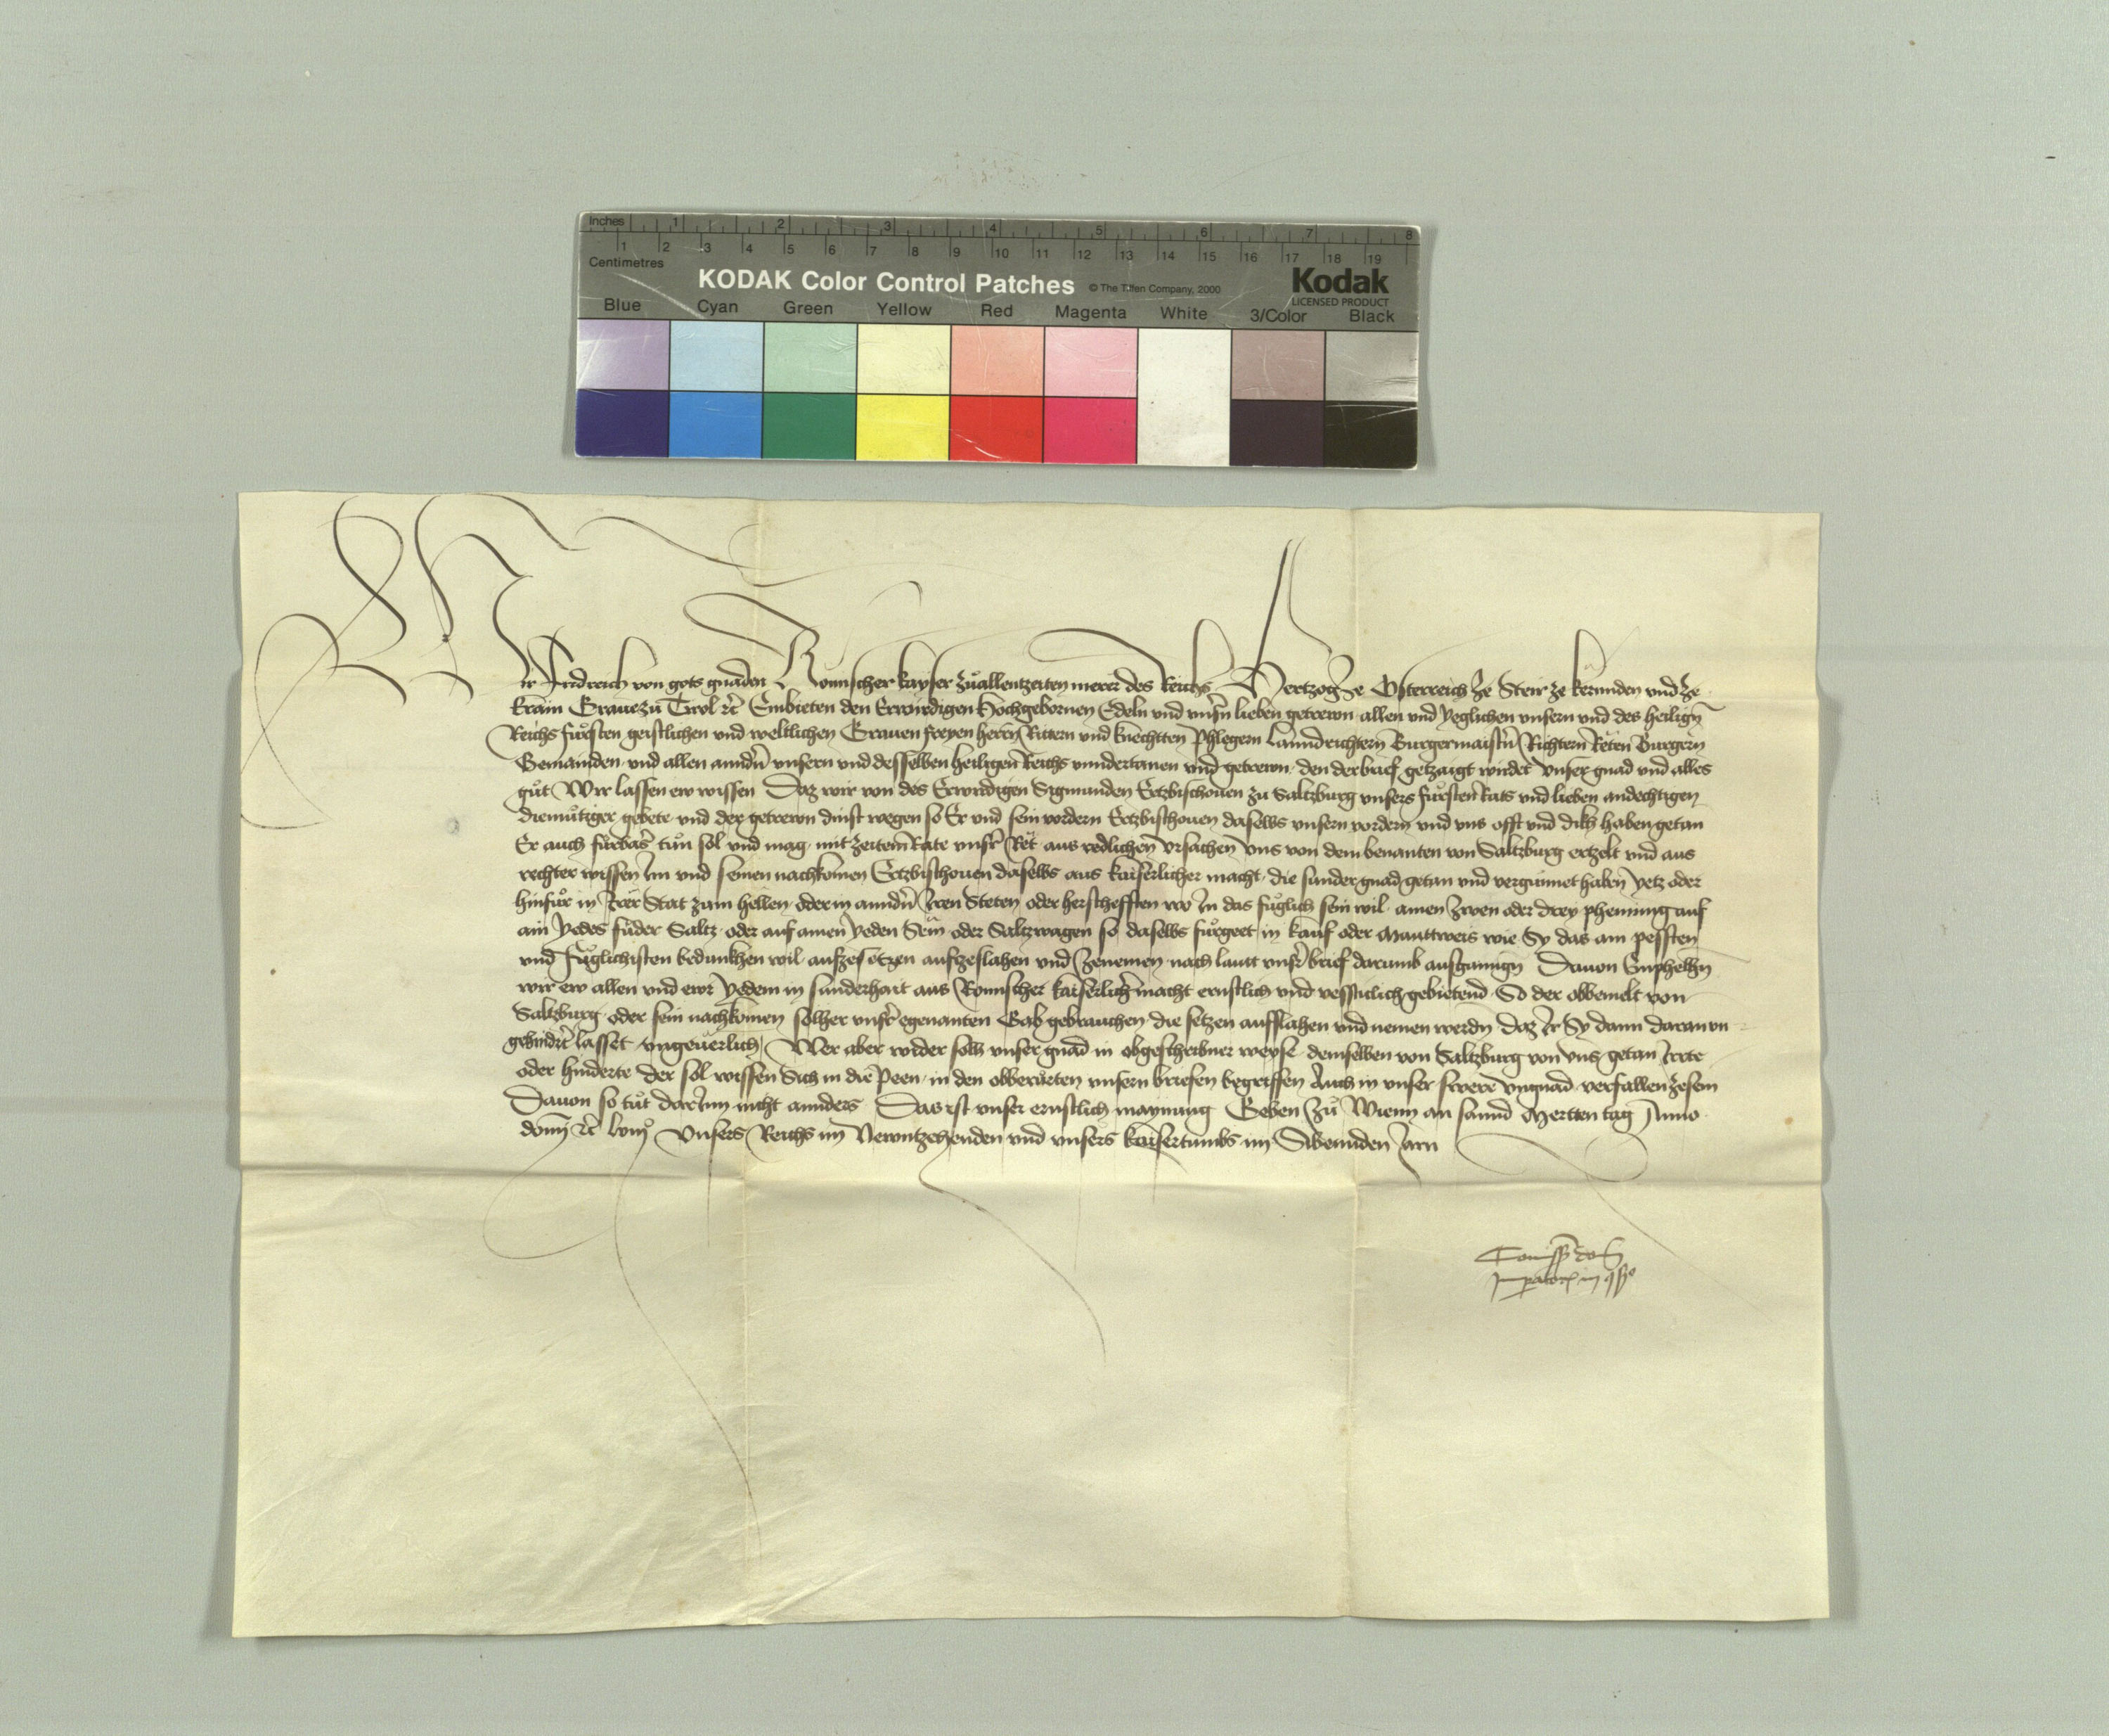 Inches 1 2 3 4 5 6 7 8
1 2 3 4 5 6 7 8 9 10 11 12 13 14 15 16 17 18 19
Centimetres
KODAK Color Control Patches © The Tiffen Company, 2000 Kodak
LICENSED PRODUCT
Blue Cyan Green Yellow Red Magenta White 3/Color Black
Wir Fridreich von gots gnaden Romischer kayser zuallentzeiten merer des Reichs Hertzog ze Osterreich ze Steir ze kernnden vnd ze
krain Graue zu Tirol etc Embieten den Erwirdigen Hochgebornen Edeln vnd vnsern lieben getrewn allen vnd yeglichen vnsern vnd des heilign
Reichs fuorsten geistlichen vnd weltlichen Grauen freyen herrn Rittern vnd knechtten Phlegern Lanndrichtern Burgermaistern Richtern Reten Burgern
Gemainden vnd allen anndern vnsern vnd desselben heiligen Reichs vnndertanen vnd getrewn den der brief getzaigt wirdet vnser gnad vnd alles
guot Wir lassen ew wissen Daz wir von des Erwirdigen Sigmunden Ertzbischouen zu Saltzburg vnsers fuorsten Rats vnd lieben andechtigen
diemuotiger gebete vnd der getrewn dinst wegen so Er vnd sein vordern Ertzbischouen daselbs vnsern vordern vnd vns offt vnd dikh haben getan
Er auch fuorbaser tuon sol vnd mag mit zeitem Rate vnser Ret aus redlichen vrsachen vns von dem benanten von Saltzburg ertzelt vnd aus
rechter wissen Im vnd seinen nachkomen Ertzbischouen daselbs aus kaiserlicher macht die sunder gnad getan vnd vergunnet haben yetz oder
hinfuor in Irer Stat zum hellen oder in anndern Iren Steten oder herschefften wo In das fuoglich sein wil ainen zwen oder drey phenning auf
ain yedes fuder Saltz oder auf ainen yeden Sem oder Saltzwagen so daselbs fuorgeet in kauf oder Mauttweis wie Sy das am pessten
vnd fuoglichisten bedunkhen wil aufzesetzen aufzeslahen vnd zenemen nach lautt vnser brief darumb ausganngn Dauon Emphelhn
wir ew allen vnd ewr yedem in sunderhait aus Romischer kaiserlicher macht ernstlich vnd vessticlich gebietend So der obbemelt von
Saltzburg oder sein nachkomen solher vnser egenanten Gab gebrauchen die setzen aufslahen vnd nemen werdn daz Ir Sy dann daran vn
gehindert lasset vngeuerlich Wer aber wider solh vnser gnad in obgeschribner weyse demselben von Saltzburg von vns getan Irrte
oder hinderte der sol wissen Sich in die Peen in den obberuorten vnsern briefen begriffen Auch in vnser swere vngnad verfallen zesein
Dauon so tuot darInn nicht annders Das ist vnser ernstlich maynung Geben zu Wienn an sannd Mertten tag Anno
domini etc lviiio Vnsers Reichs im Newntzehenden vnd vnsers kaisertumbs im Sibennden Jarn